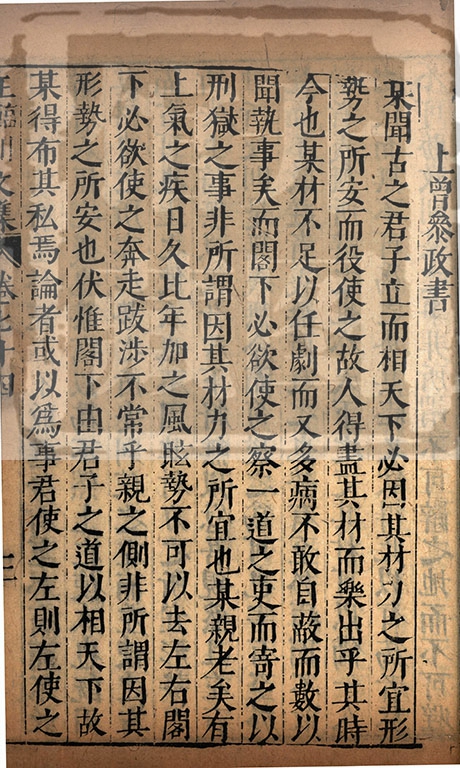 上曾參政書
某聞古之君子立而相天下必因其材力之所宜形
勢之所安而役使之故人得盡其材而樂出乎其時
今也某材不足以任劇而又多病不敢自蔽而數以
聞執事矣而閤下必欲使之察一道之吏而寄之以
刑獄之事非所謂因其材力之所宜也某親老矣有
上氣之疾日久比年加之風眩勢不可以去左右閤
下必欲使之奔走跋涉不常乎親之側非所謂因其
形勢之所安也伏惟閤下由君子之道以相天下故
某得布其私焉論者或以爲事君使之左則左使之
王臨川文集 卷七十四